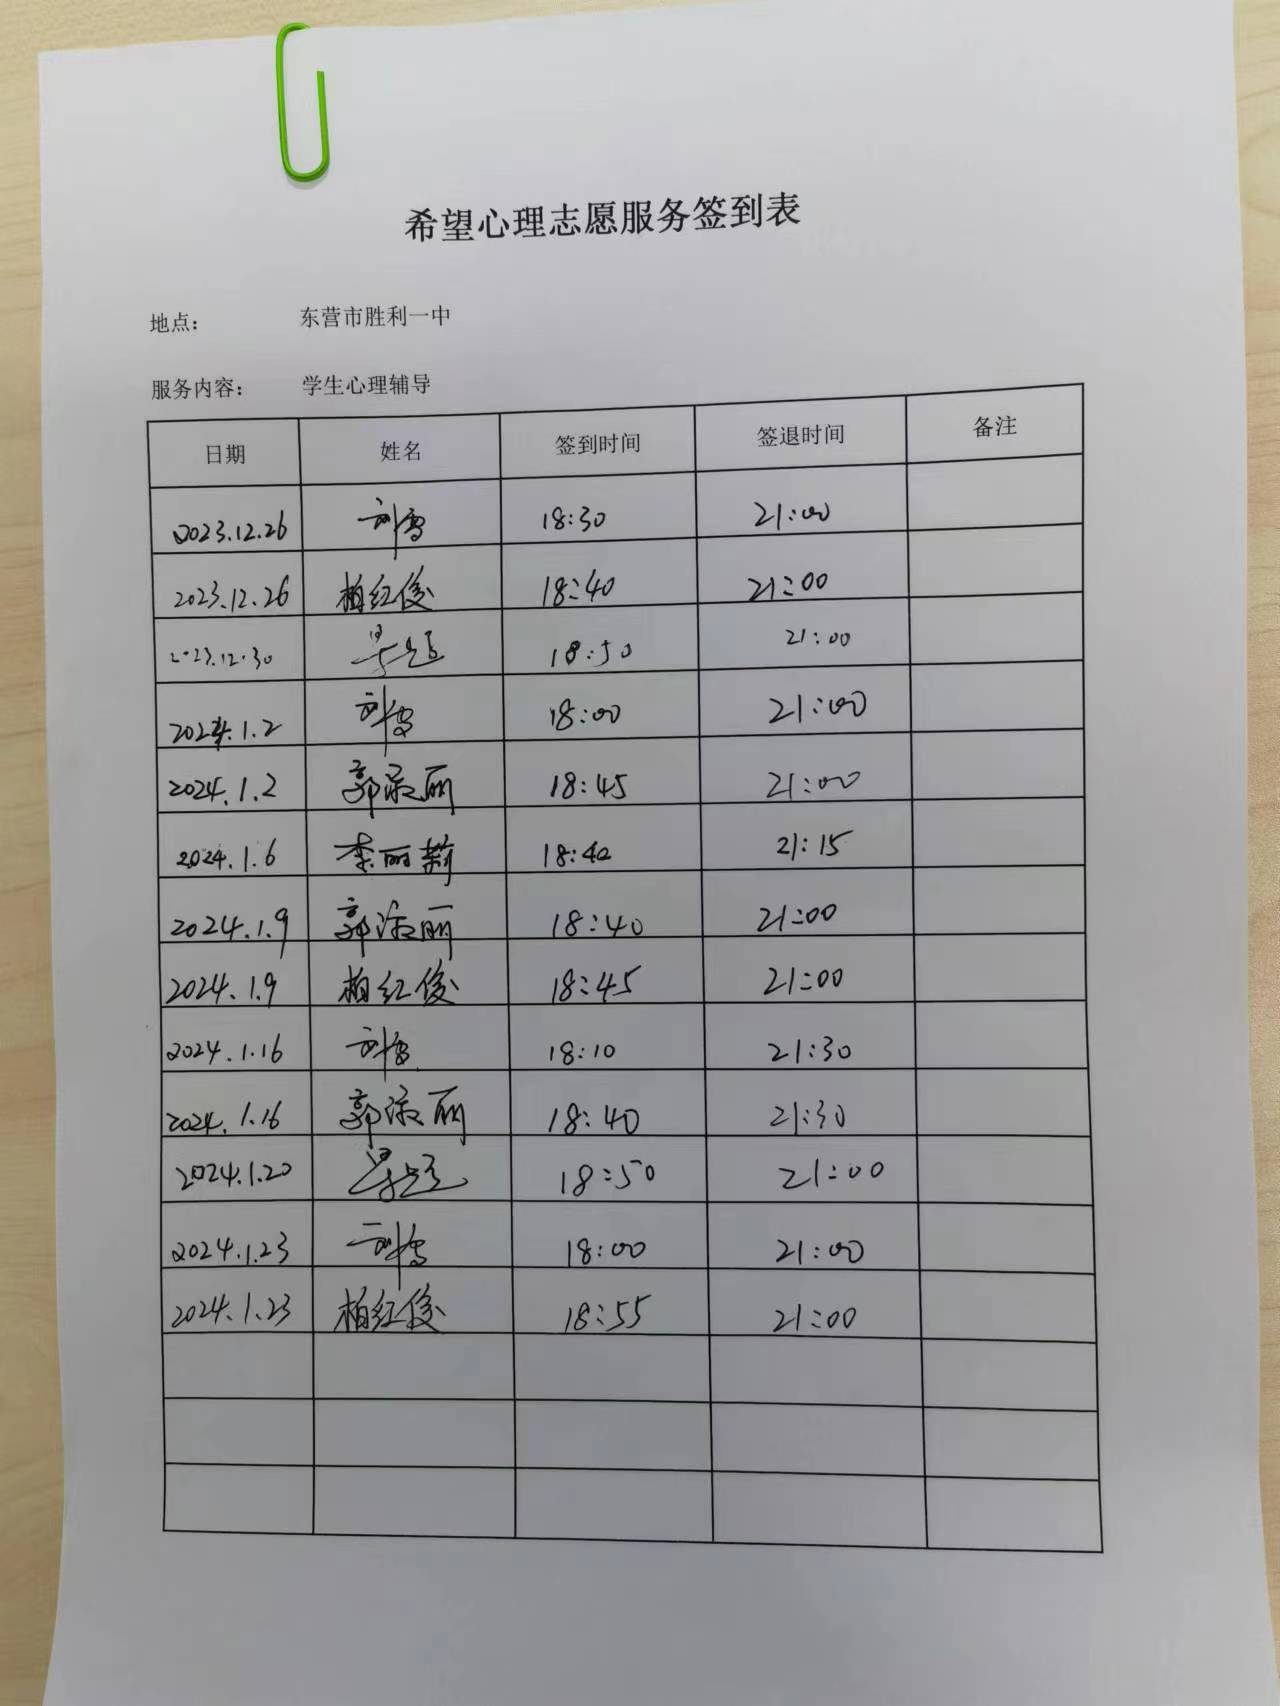 希望心理志愿服务签到表
地点： 东营市胜利一中
服务内容： 学生心理辅导
日期 姓名 签到时间 签退时间 备注
2023.12.26 刘雪 18:30 21:00
2023.12.26 柏红俊 18:40 21:00
2023.12.30 18:50 21:00
2024.1.2 刘雪 18:00 21:00
2024.1.2 郭淑丽 18:45 21:00
2024.1.6 李丽莉 18:40 21:15
2024.1.9 郭淑丽 18:40 21:00
2024.1.9 柏红俊 18:45 21:00
2024.1.16 刘雪 18:10 21:30
2024.1.16 郭淑丽 18:40 21:30
2024.1.20 18:50 21:00
2024.1.23 刘雪 18:00 21:00
2024.1.23 柏红俊 18:55 21:00